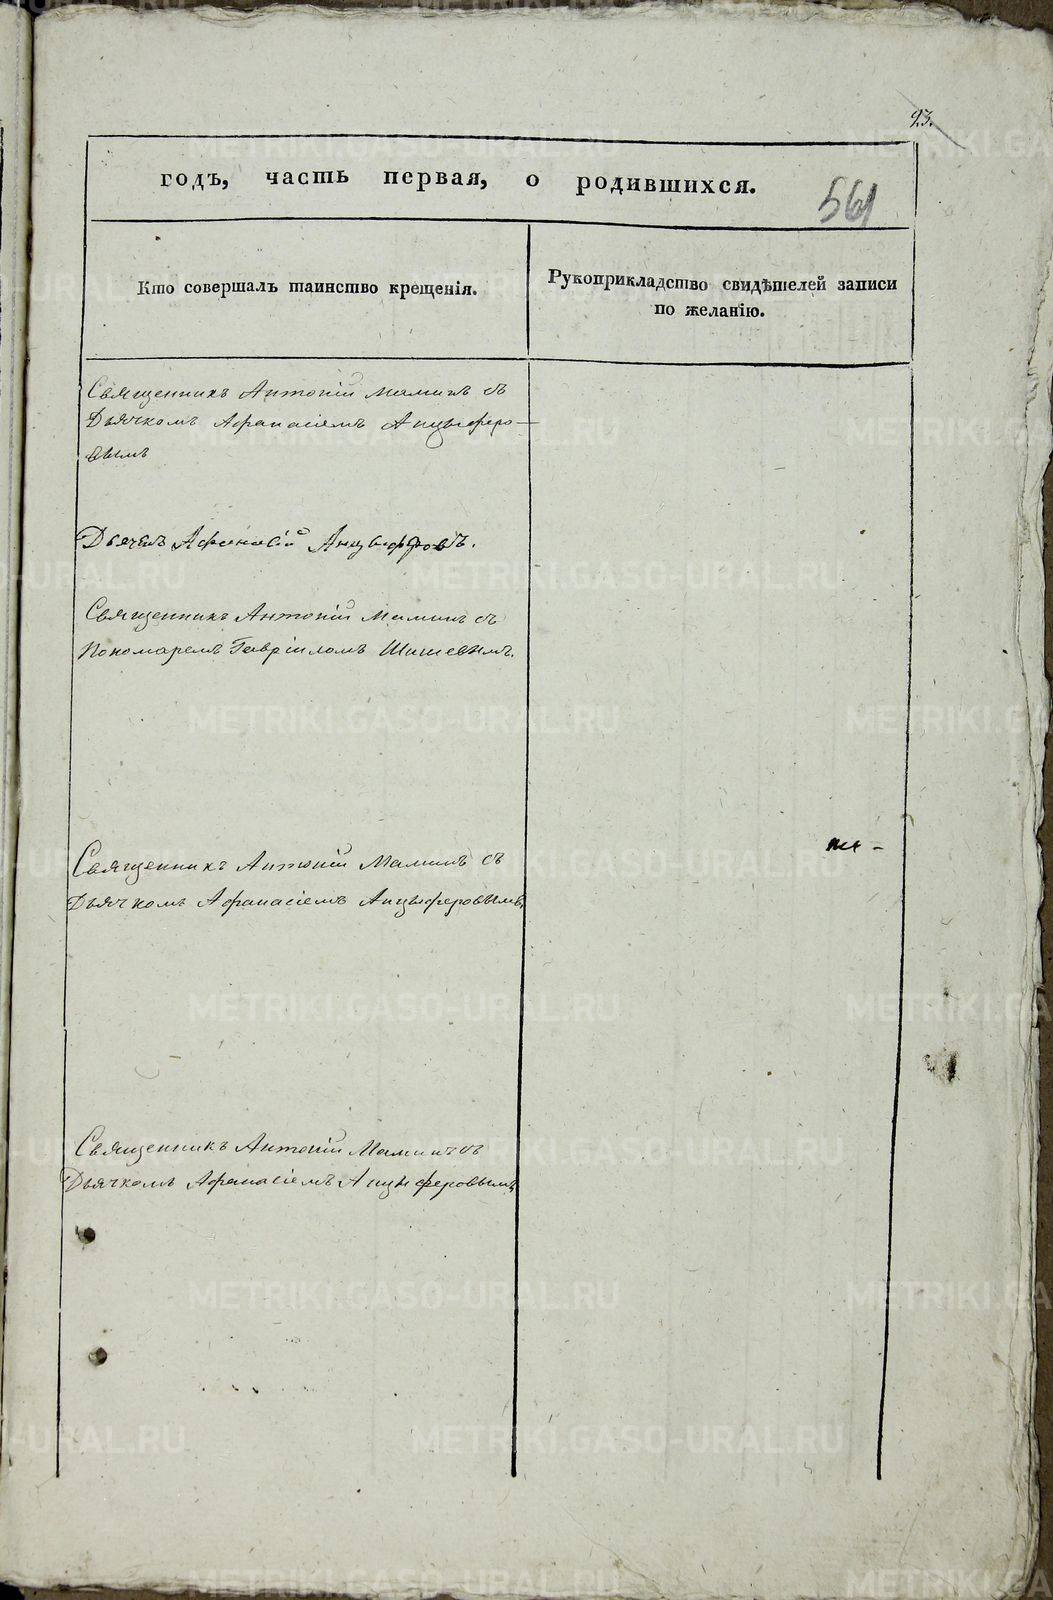 93.
годъ, часть первая, о родившихся.
561
Кто совершалъ таинство крещенія.
Рукоприкладство свидѣтелей записи
по желанію.
Священникъ Антоній Маминъ съ
Дьячкомъ Афанасіемъ Анцыферо-
вымъ
Дьячекъ Афанасій Анцыферовъ.
Священникъ Антоній Маминъ съ
Пономаремъ Гавріиломъ Шишевымъ.
Священникъ Антоній Маминъ съ
Дьячкомъ Афанасіемъ Анцыферовымъ.
Священникъ Антоній Маминъ съ
Дьячкомъ Афанасіемъ Анцыферовымъ
METRIKI.GASO-URAL.RU